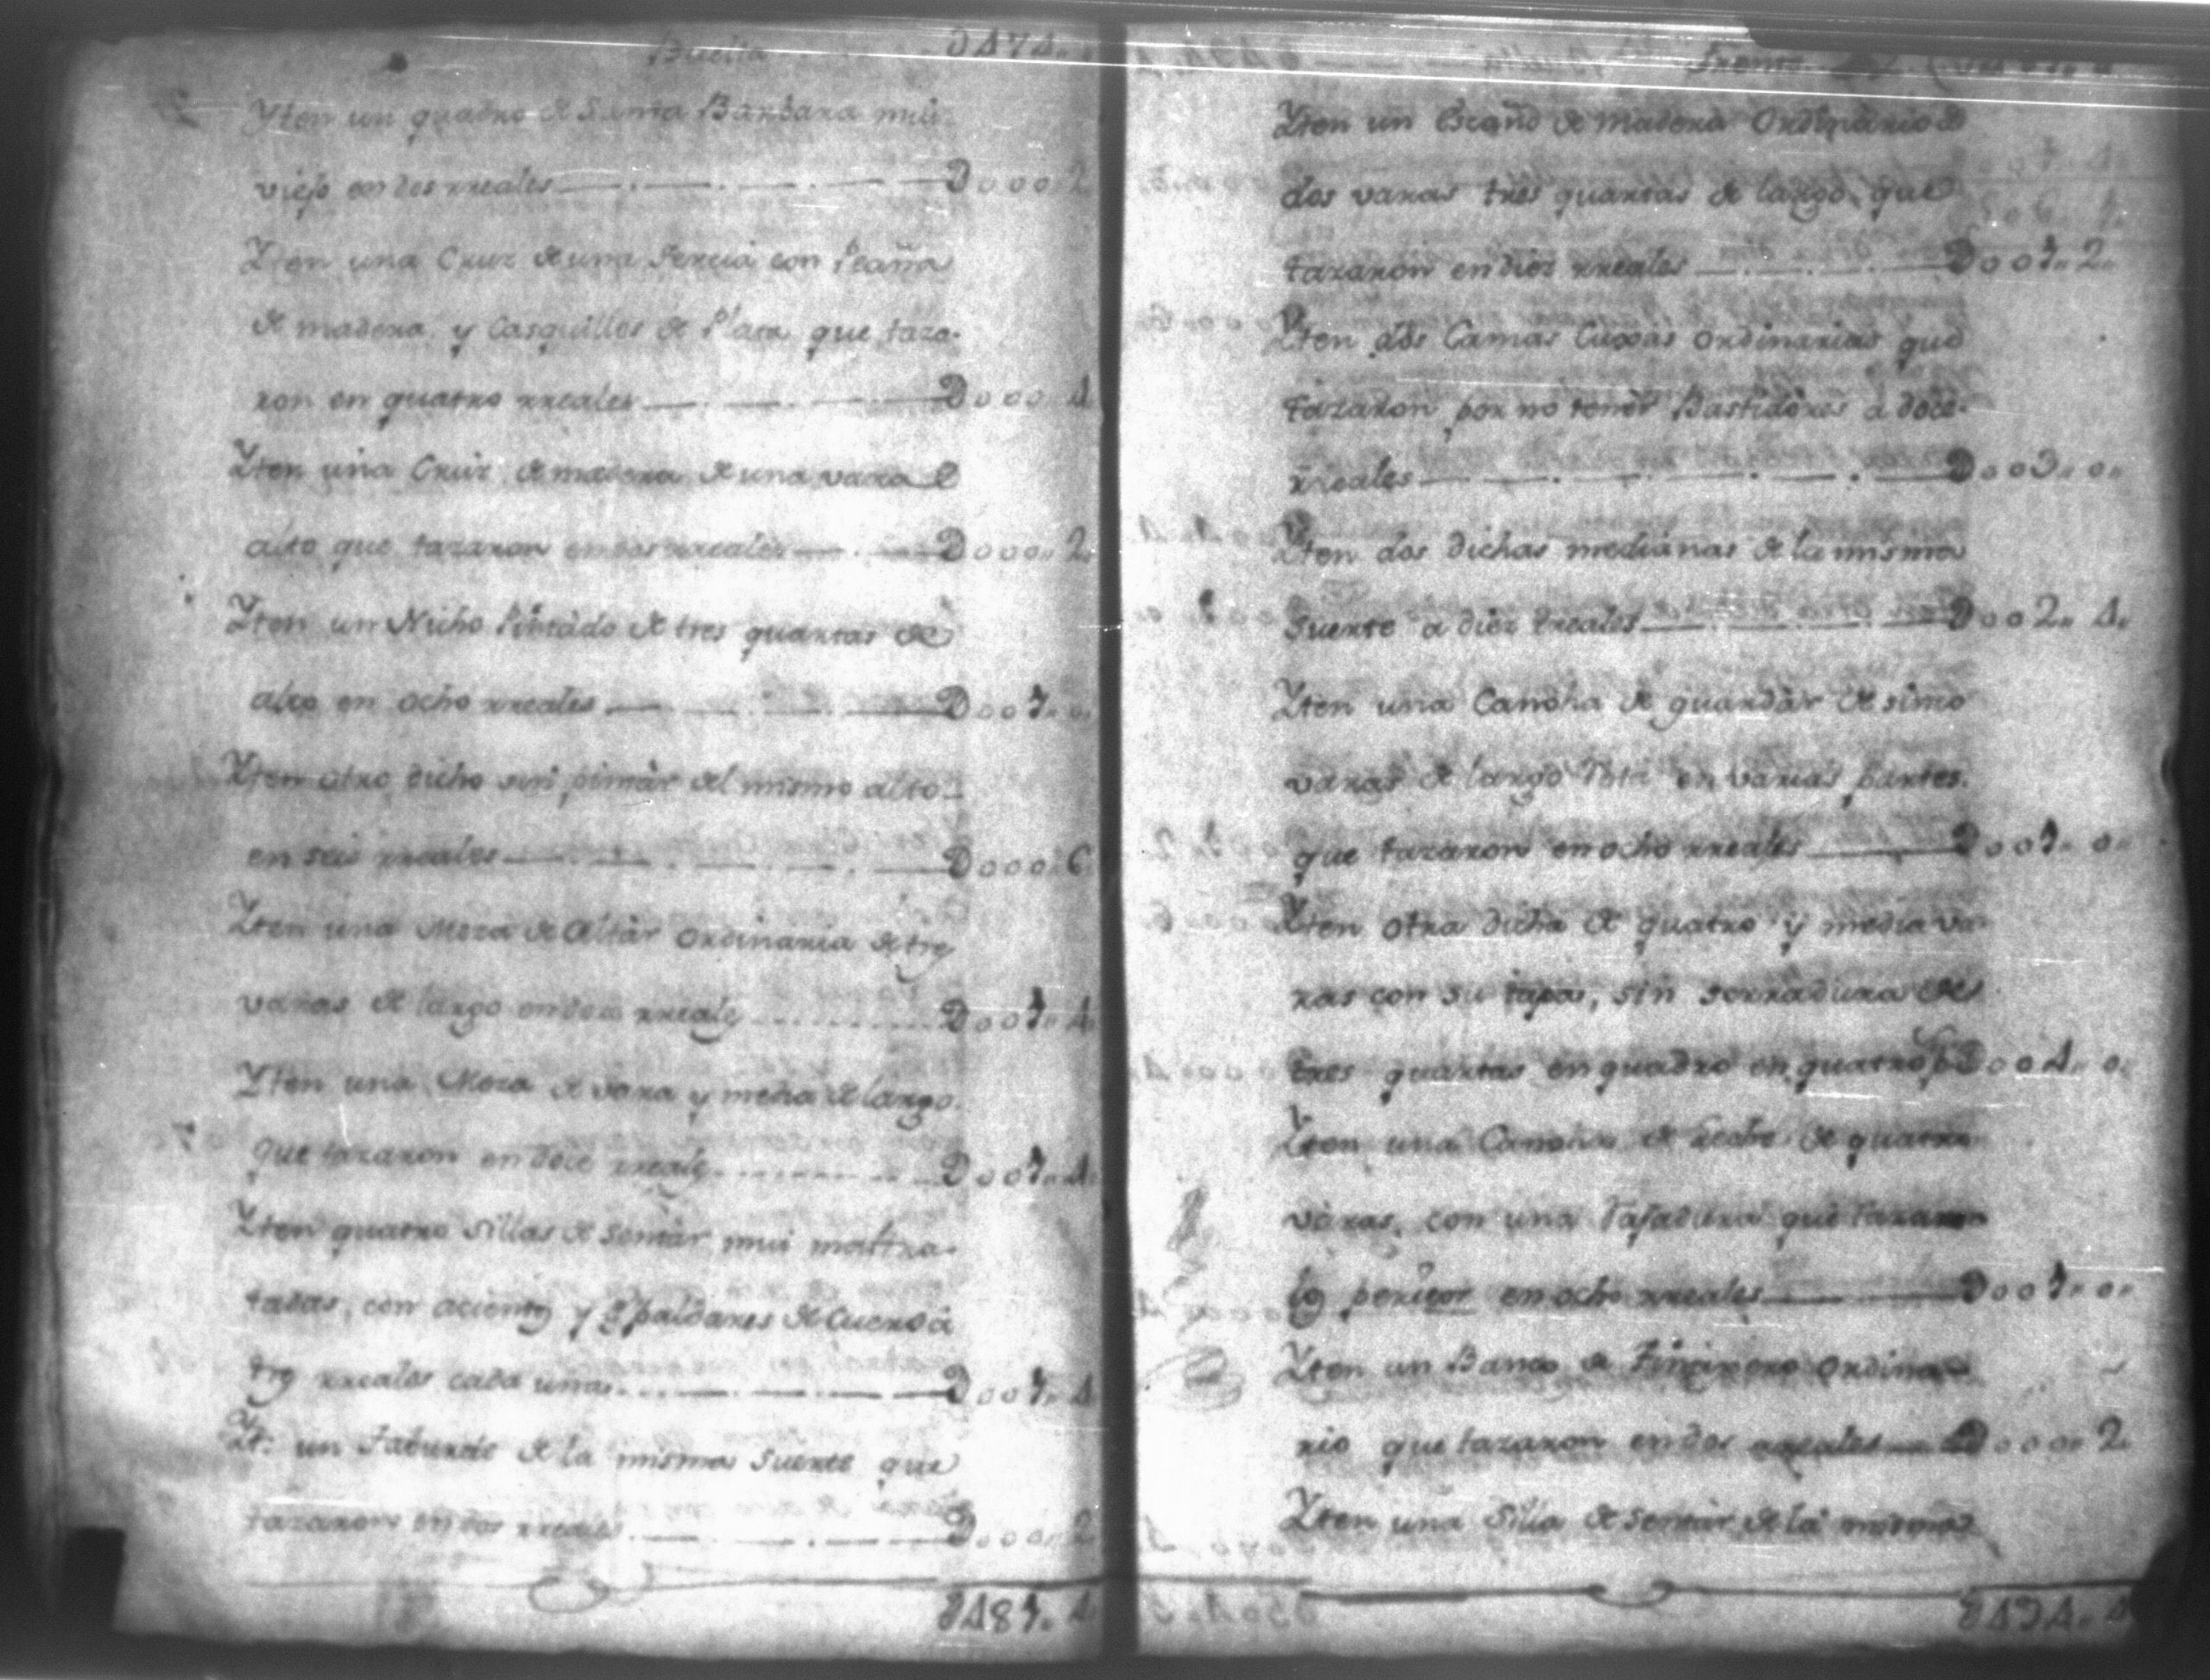 Buelta
Yten un quadro de Santa Barbara mui
viejo en dos rreales D000.. 2
Yten una Cruz de una tercia con Peaña
de madera y Casquillos de Plata que taza-
ron en quatro rreales D000.. 4
Yten una Cruz de madera de una vara de
alto que tazaron en dos rreales D000.. 2.
Yten un Nicho Pintado de tres quartas de
alto en ocho rreales D001.. 0..
Yten otro dicho sin pintàr del mismo alto
en seis rreales D000.. 6
Yten una Meza de Altàr ordinaria de tres
varas de largo en doce rreales D001.. 4.
Yten una Meza de vara y media de largo.
que tazaron en doce rreales D001.. 4.
Yten quatro Sillas de sentàr mui maltra-
tadas, con acientos y Espaldares de Cuero à
tres rreales cada una D001.. 4
Yt: un Taburete de la misma suerte que
tazaron en dos rreales D000.. 2
D481.. 4.
Yten un Escaño de madera Ordinario de
dos varas tres quartas de largo, que
tazaron en diez rreales D001.. 2..
Yten dos Camas Cuxas ordinarias que
tazaron por no tenèr Bastidores à doce
rreales D003.. 0..
Yten dos dichas medianas de la misma
suerte à diez rreales D002.. 4..
Yten una Canoha de guardàr de sinco
varas de largo Rota en varias partes.
que tazaron en ocho rreales D001.. 0..
Yten otra dicha de quatro y media va-
ras con su tapa, sin serradura de
tres quartas en quadro en quatro ps D004.. 0..
Yten una Canoha de de quatro
varas, con una que tazaron
los peritos en ocho rreales D001.. 0..
Yten un Banco de Ordina-
rio que tazaron en dos rreales D000.. 2.
Yten una Silla de sentàr de la misma
D494.. 4